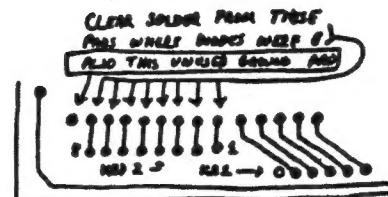 CLEAR SOLDER FROM THESE
PADS WHERE DIODES WERE 8
ALSO THIS UNUSED GROUND PAD
8 1
KB2 KB1 → 0